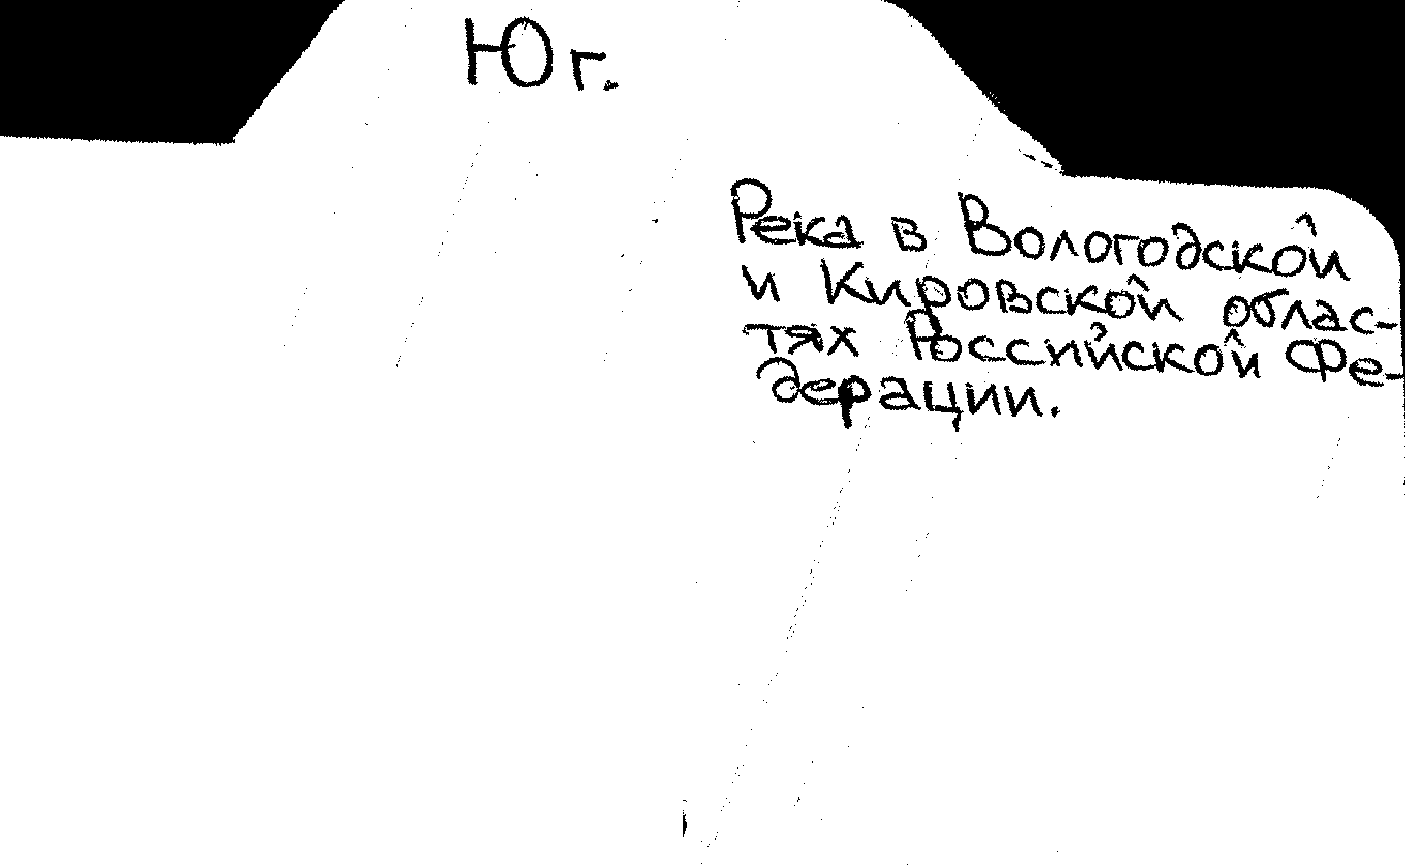 Юг.
Река в Вологодской
и Кировской облас-
тях Российской Фе-
дерации.